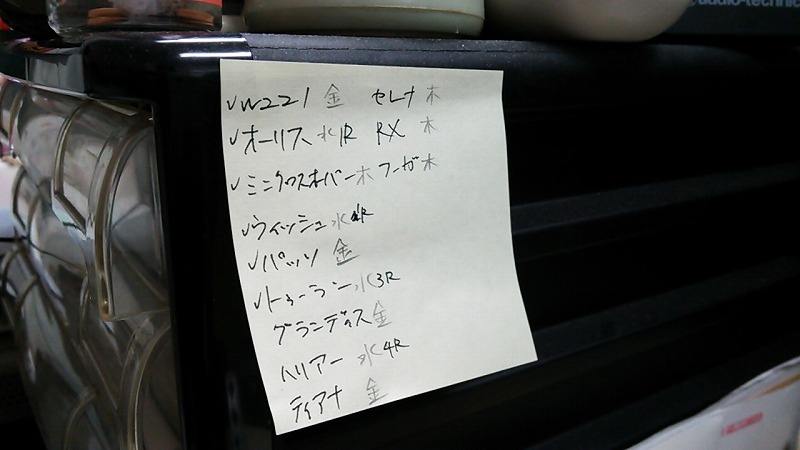 audio-technic
✓W221 金 セレナ 木
✓オーリス 水1R RX 木
✓ミニクロスオーバー木 フーガ木
✓ウィッシュ水4R
✓パッソ 金
✓トゥーラン 水3R
グランディス金
ハリアー 水4R
ティアナ 金